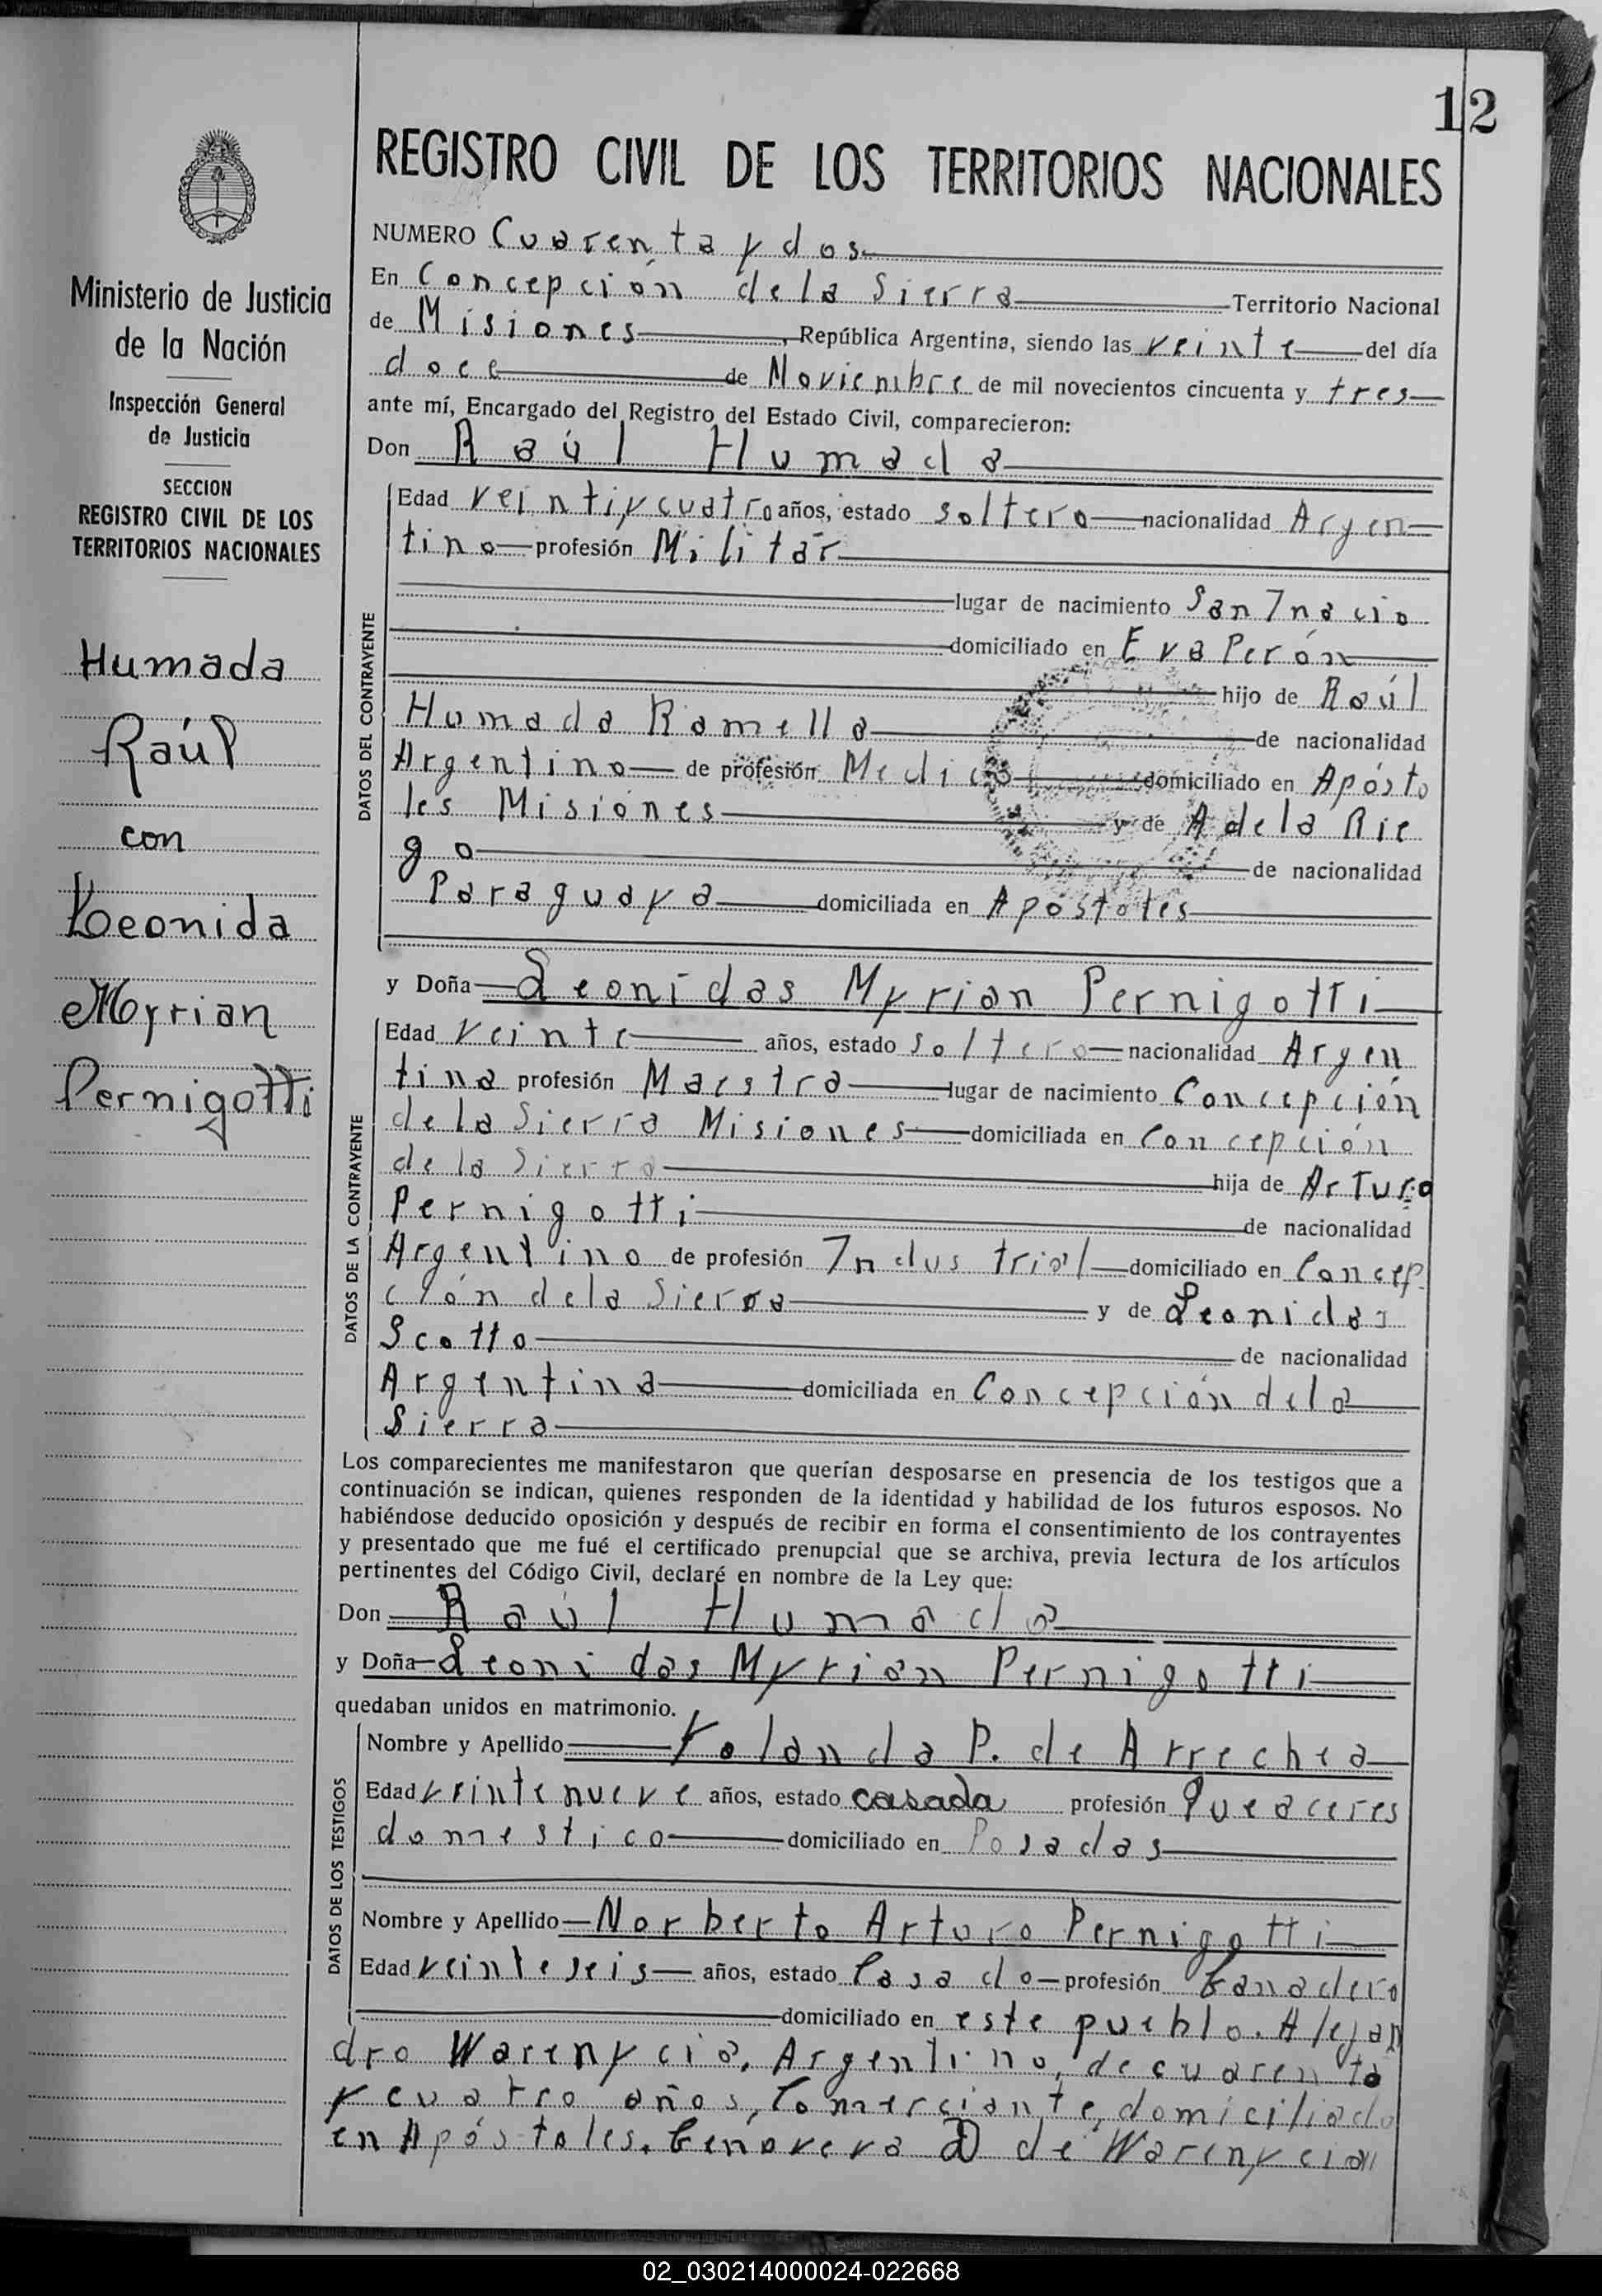 12
REGISTRO CIVIL DE LOS TERRITORIOS NACIONALES
Ministerio de Justicia
de la Nación
Inspección General
de Justicia
SECCION
REGISTRO CIVIL DE LOS
TERRITORIOS NACIONALES
Humada
Raúl
con
Leonida
Myrian
Pernigotti
NUMERO Cuarenta y dos
En Concepción de la Sierra Territorio Nacional
de Misiones, República Argentina, siendo las veinte del día
doce de Noviembre de mil novecientos cincuenta y tres
ante mí, Encargado del Registro del Estado Civil, comparecieron:
Don Raúl Humada
DATOS DEL CONTRAYENTE
Edad veintiycuatro años, estado soltero nacionalidad Argen
tino profesión Militar
lugar de nacimiento San Inacio
domiciliado en Eva Perón
hijo de Raúl
Humada Ramella de nacionalidad
Argentino de profesión Medico domiciliado en Apósto
les Misiones y de Adela Rie
go de nacionalidad
Paraguaya domiciliada en Apóstoles
y Doña Leonidas Myrian Pernigotti
DATOS DE LA CONTRAYENTE
Edad veinte años, estado soltero nacionalidad Argen
tina profesión Maestra lugar de nacimiento Concepción
de la Sierra Misiones domiciliada en Concepción
de la Sierra hija de Arturo
Pernigotti de nacionalidad
Argentino de profesión Industrial domiciliado en Concep
ción de la Sierra y de Leonidas
Scotto de nacionalidad
Argentina domiciliada en Concepción de la
Sierra
Los comparecientes me manifestaron que querían desposarse en presencia de los testigos que a
continuación se indican, quienes responden de la identidad y habilidad de los futuros esposos. No
habiéndose deducido oposición y después de recibir en forma el consentimiento de los contrayentes
y presentado que me fué el certificado prenupcial que se archiva, previa lectura de los artículos
pertinentes del Código Civil, declaré en nombre de la Ley que:
Don Raúl Humada
y Doña Leonidas Myrian Pernigotti
quedaban unidos en matrimonio.
DATOS DE LOS TESTIGOS
Nombre y Apellido Yolanda P. de Arrechea
Edad veintenueve años, estado casada profesión Queaceres
domestico domiciliado en Posadas
Nombre y Apellido Norberto Arturo Pernigotti
Edad veinteseis años, estado Casado profesión Ganadero
domiciliado en este pueblo. Alejan
dro Warenycia, Argentino, de cuarenta
y cuatro años, Comerciante, domiciliado
en Apóstoles. Genoveva de Warenycia
02_030214000024-022668